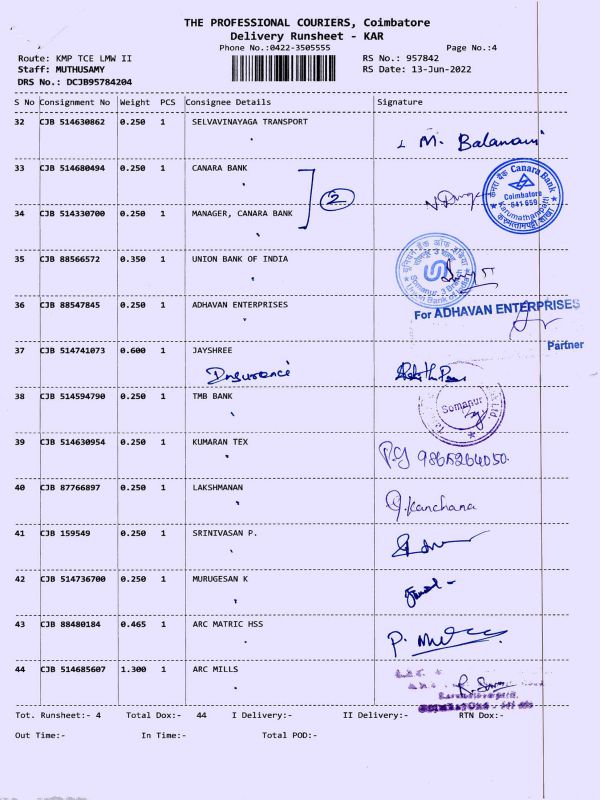 THE PROFESSIONAL COURIERS, Coimbatore
Delivery Runsheet - KAR
Phone No.:0422-3505555
Page No.:4
Route: KMP TCE LMW II
RS No.: 957842
Staff: MUTHUSAMY
RS Date: 13-Jun-2022
DRS No.: DCJB95784204
S No Consignment No Weight PCS Consignee Details Signature
32 CJB 514630862 0.250 1 SELVAVINAYAGA TRANSPORT
M. Balamani
33 CJB 514680494 0.250 1 CANARA BANK
2
Canara Bank
Coimbatore
641 659
Karumathampatti
34 CJB 514330700 0.250 1 MANAGER, CANARA BANK
35 CJB 88566572 0.350 1 UNION BANK OF INDIA
Somanur, 3 Branch
Union Bank of India
36 CJB 88547845 0.250 1 ADHAVAN ENTERPRISES
For ADHAVAN ENTERPRISES
Partner
37 CJB 514741073 0.600 1 JAYSHREE
Insurance
38 CJB 514594790 0.250 1 TMB BANK
Somanur
Ltd.
39 CJB 514630954 0.250 1 KUMARAN TEX
40 CJB 87766897 0.250 1 LAKSHMANAN
J. Kanchana
41 CJB 159549 0.250 1 SRINIVASAN P.
42 CJB 514736700 0.250 1 MURUGESAN K
43 CJB 88480184 0.465 1 ARC MATRIC HSS
44 CJB 514685607 1.300 1 ARC MILLS
Tot. Runsheet:- 4 Total Dox:- 44 I Delivery:- II Delivery:- RTN Dox:-
Out Time:- In Time:- Total POD:-